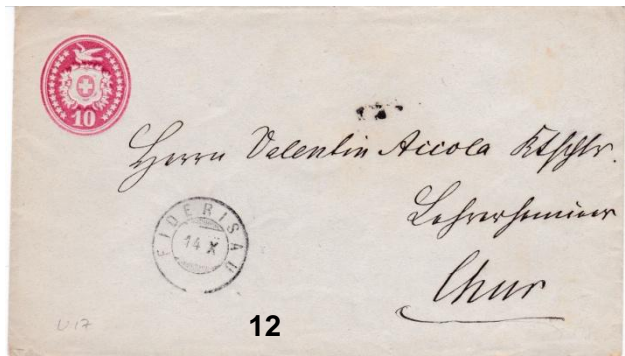 10
Herrn Valentin Accola Ktschlr.
Lehrerseminar
Chur
FIDERISAU
14 X
U 17
12